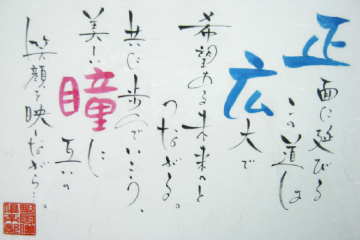 正面に延びる
この道は
広大で
希望ある未来へと
つながる。
共に歩んでいこう、
美しい瞳に
互いの
笑顔を映しながら…。